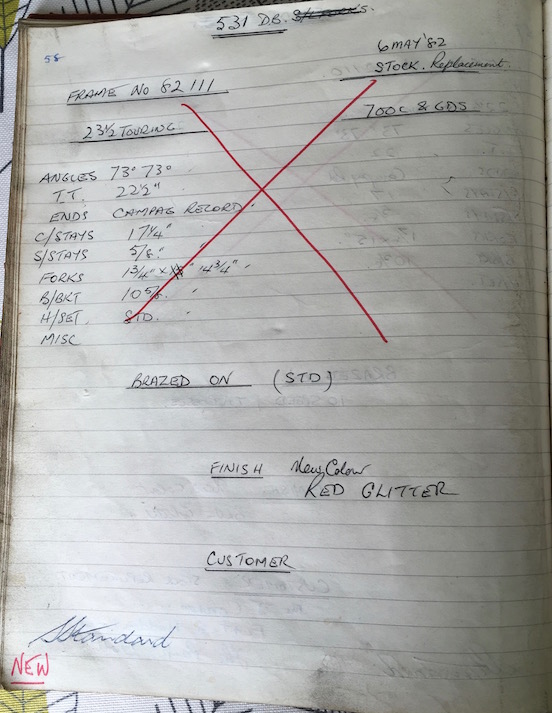 531 D.B.
58
6 MAY '82
STOCK. Replacement
FRAME NO 82111
700C & GDS
23½ TOURING.
ANGLES 73° 73°
T.T. 22½"
ENDS CAMPAG RECORD
C/STAYS 17¼"
S/STAYS 5/8"
FORKS 1¾" x 14¾"
B/BKT 10 5/8
H/SET. STD.
MISC
BRAZED ON (STD)
FINISH New Colour
RED GLITTER
CUSTOMER
Standard
NEW